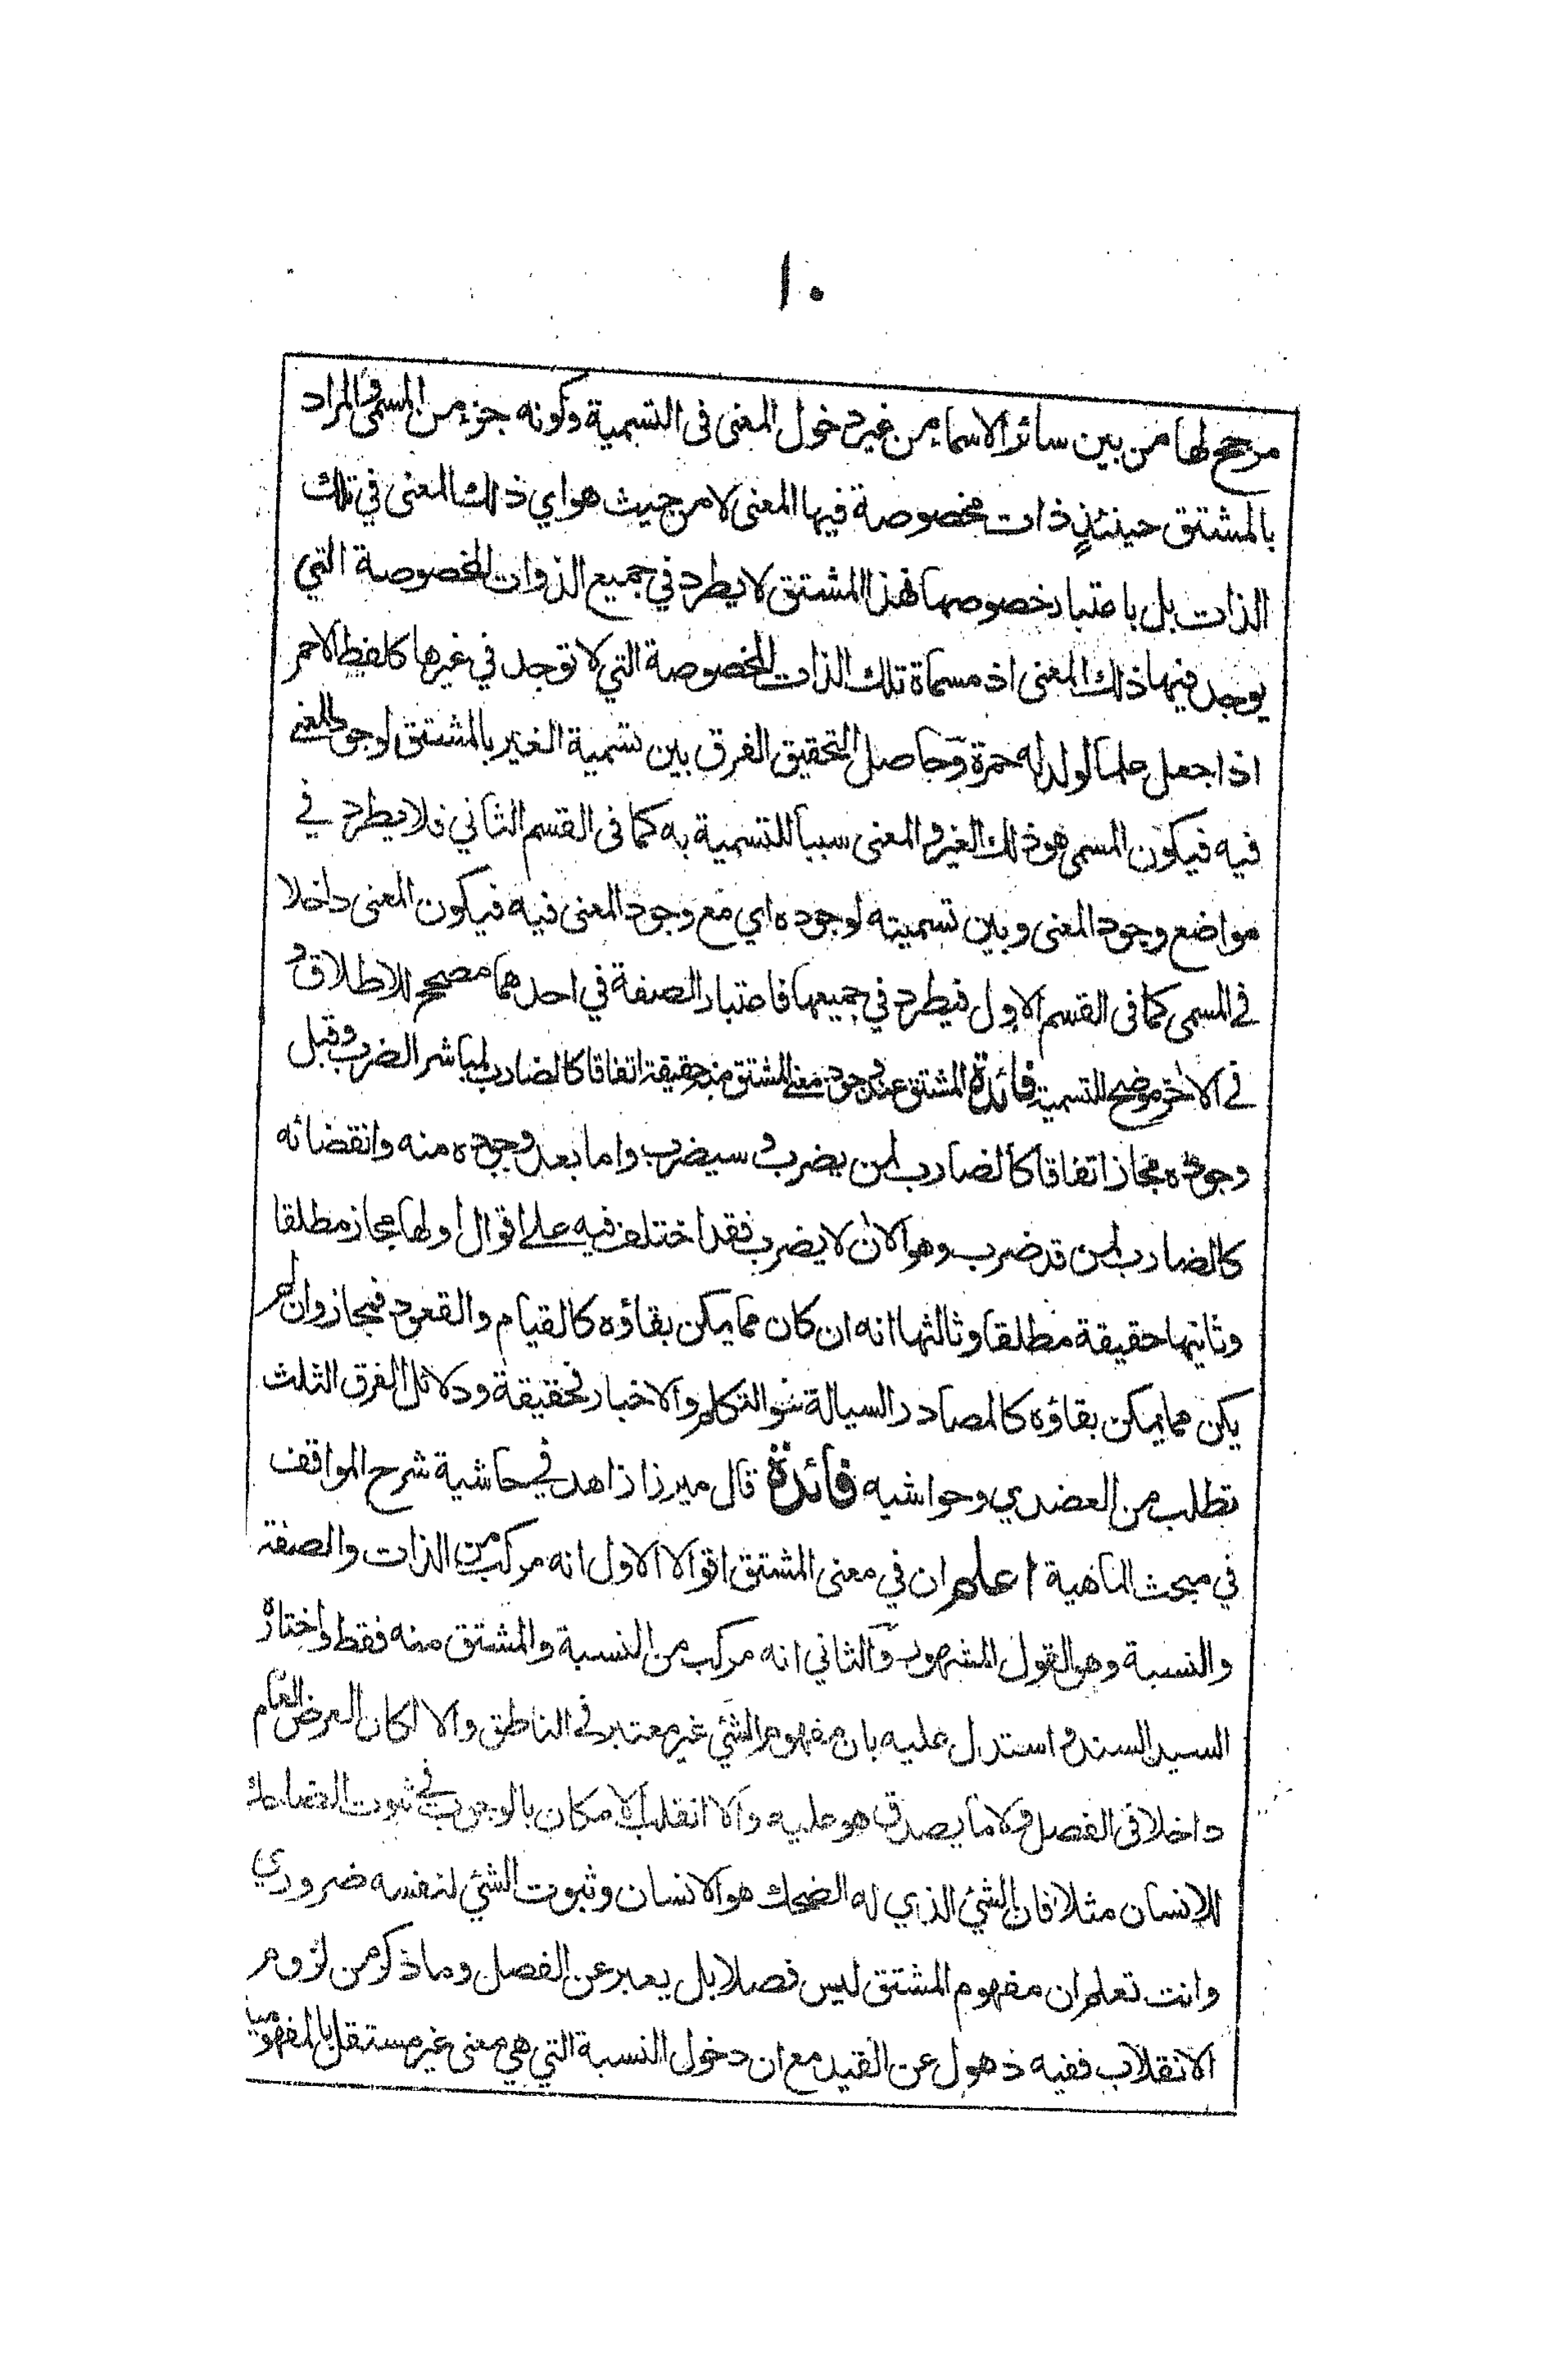 ١٠
مرجح لها من بين سائر الاسماء من غير دخول المعنى فى التسمية وكونه جزء من المسمى والمراد
بالمشتق حينئذٍ ذات مخصوصة فيها المعنى لا من حيث هو اي ذلك المعنى في تلك
الذات بل باعتبار خصوصها فهذا المشتق لا يطرد في جميع الذوات المخصوصة التي
يوجد فيها ذلك المعنى اذ مسماة تلك الذات المخصوصة التي لا توجد في غيرها كلفظ الاحمر
اذا جعل علما لولد له حمرة وحاصل التحقيق الفرق بين تسمية الغير بالمشتق لوجود المعنى
فيه فيكون المسمى هو ذلك الغير والمعنى سببا للتسمية به كما فى القسم الثاني فلا يطرد في
مواضع وجود المعنى وبين تسميته لوجوده اي مع وجود المعنى فيه فيكون المعنى داخلا
في المسمى كما فى القسم الاول فيطرد في جميعها فاعتبار الصفة في احدهما مصحح للاطلاق و
في الاخر موضح للتسمية فائدة المشتق عند وجود معنى المشتق منه حقيقة اتفاقا كالضارب لمباشر الضرب وقبل
وجوده مجاز اتفاقا كالضارب لمن يضرب وسيضرب واما بعد وجوده منه وانقضائه
كالضارب لمن قد ضرب وهو الان لا يضرب فقد اختلف فيه على اقوال اولها مجاز مطلقا
وثانيها حقيقة مطلقا وثالثها انه ان كان مما يمكن بقاؤه كالقيام والقعود فمجاز وان لم
يكن مما يمكن بقاؤه كالمصادر السيالة نحو التكلم والاخبار فحقيقة ودلائل الفرق الثلث
تطلب من العضدي وحواشيه فائدة قال ميرزا زاهد في حاشية شرح المواقف
في مبحث الماهية اعلم ان في معنى المشتق اقوالا الاول انه مركب من الذات والصفة
والنسبة وهو القول المشهور والثاني انه مركب من النسبة والمشتق منه فقط واختاره
السيد السند واستدل عليه بان مفهوم الشئي غير معتبر في الناطق والا لكان العرض العام
داخلا فى الفصل ولا ما يصدق هو عليه والا انقلب الامكان بالوجوب في ثبوت الضاحك
للانسان مثلا فان الشئي الذي له الضحك هو الانسان وثبوت الشئي لنفسه ضروري
وانت تعلم ان مفهوم المشتق ليس فصلا بل يعبر عن الفصل وما ذكر من لزوم
الانقلاب ففيه ذهول عن القيد مع ان دخول النسبة التي هي معنى غير مستقل بالمفهومية